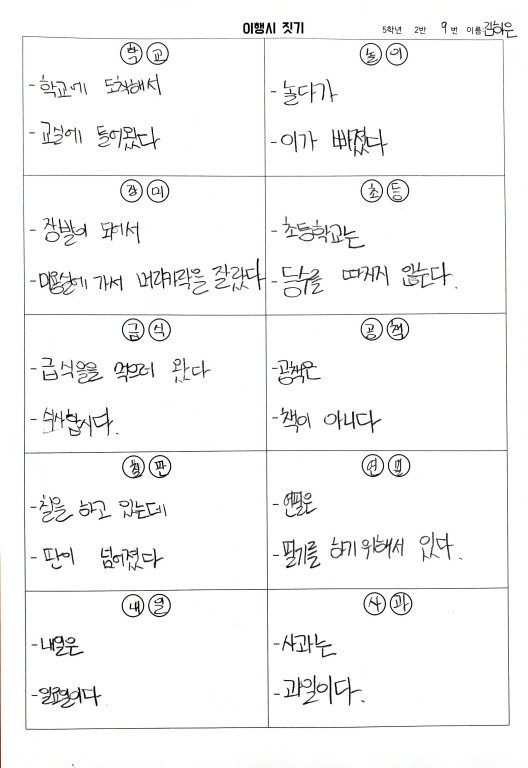 이행시 짓기
5학년 2반 9번 이름 김하은
학교
- 학교에 도착해서
- 교실에 들어왔다
놀이
- 놀다가
- 이가 빠졌다
장미
- 장발이 되어서
- 미용실에 가서 머리카락을 잘랐다
초등
- 초등학교는
- 등수를 따지지 않는다.
급식
- 급식을을 먹으러 왔다
- 식사합시다.
공책
- 공책은
- 책이 아니다
칠판
- 칠을 하고 있는데
- 판이 넘어졌다
연필
- 연필은
- 필기를 하기 위해서 있다.
내일
- 내일은
- 일요일이다
사과
- 사과는
- 과일이다.